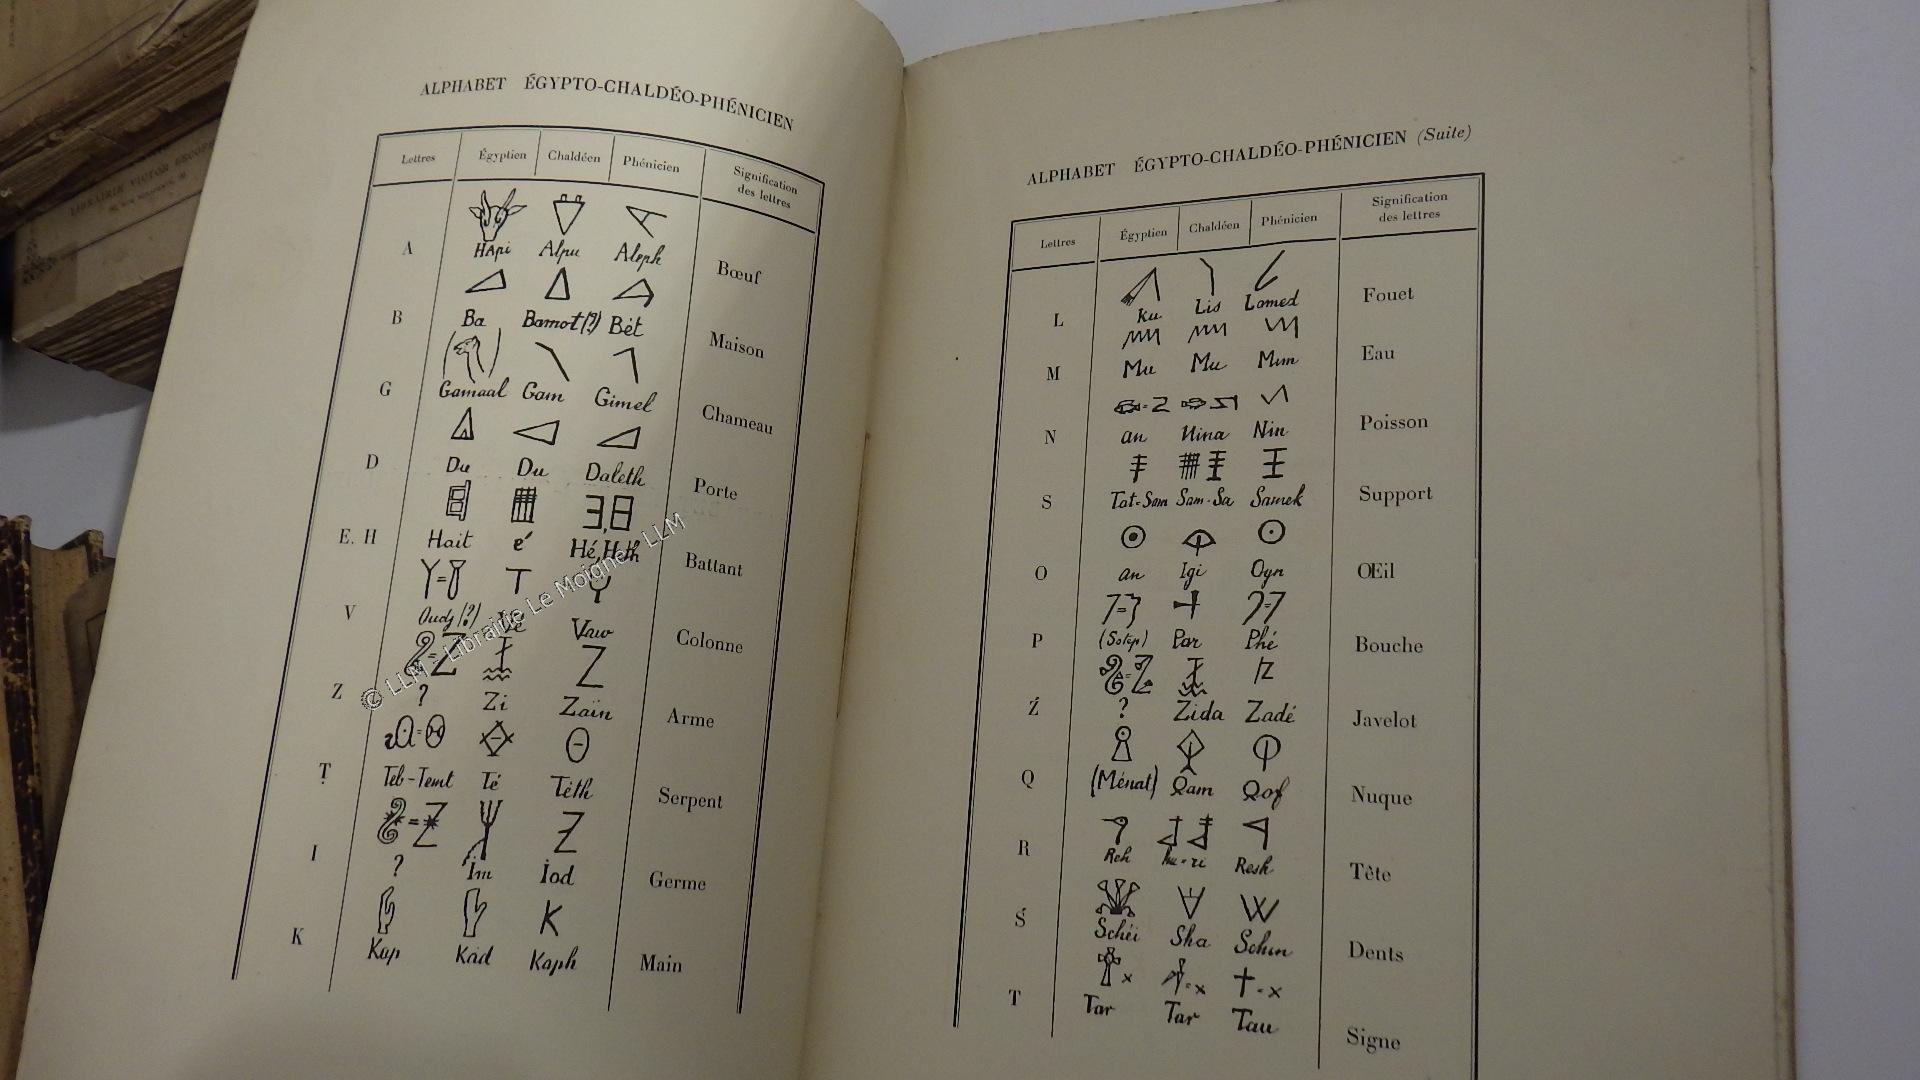 ALPHABET ÉGYPTO-CHALDÉO-PHÉNICIEN
Lettres Égyptien Chaldéen Phénicien Signification des lettres
HApi Alpu Aleph
A Bœuf
B Ba Bamot(?) Bêt Maison
G Gamaal Gam Gimel Chameau
D Du Du Daleth Porte
E. H Hait é Hé, Battant
V Vaw Colonne
Z ? Zi Zaïn Arme
Ṭ Teb-Temt Té Têth Serpent
I ? Im Iod Germe
K Kap Kad Kaph Main
© LLM - Librairie Le Moigne - LLM
LIBRAIRIE VICTOR
ALPHABET ÉGYPTO-CHALDÉO-PHÉNICIEN (Suite)
Lettres Égyptien Chaldéen Phénicien Signification des lettres
L Ku Lis Lamed Fouet
M Mu Mu Mim Eau
N an Nina Nin Poisson
S Tat-Sam Sam-Sa Samek Support
O an Igi Oyn Œil
P (Sotep) Par Phé Bouche
Ź ? Zida Zadé Javelot
Q (Ménat) Qam Qof Nuque
R Reh Resh Tête
Ś Schéi Sha Schin Dents
T Tar Tar Tau Signe